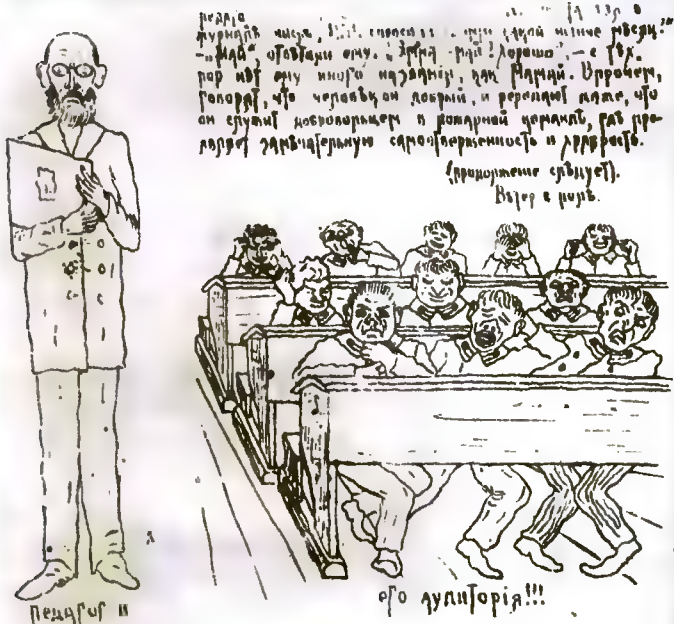 журналъ числа, какой нынче мѣсяц?"
— "Май", отвѣтили ему. май? хорошо" — с тѣх
пор нѣт ему иного названія, как Мамай. Впрочем,
говорят, что человѣк он добрый, и передают даже, что
он служит добровольцем в пожарной командѣ, гдѣ про-
являет замѣчательную самоотверженность и храбрость.
(продолженіе слѣдует).
Вѣтер в полѣ.
педагог и
его аудиторія!!!